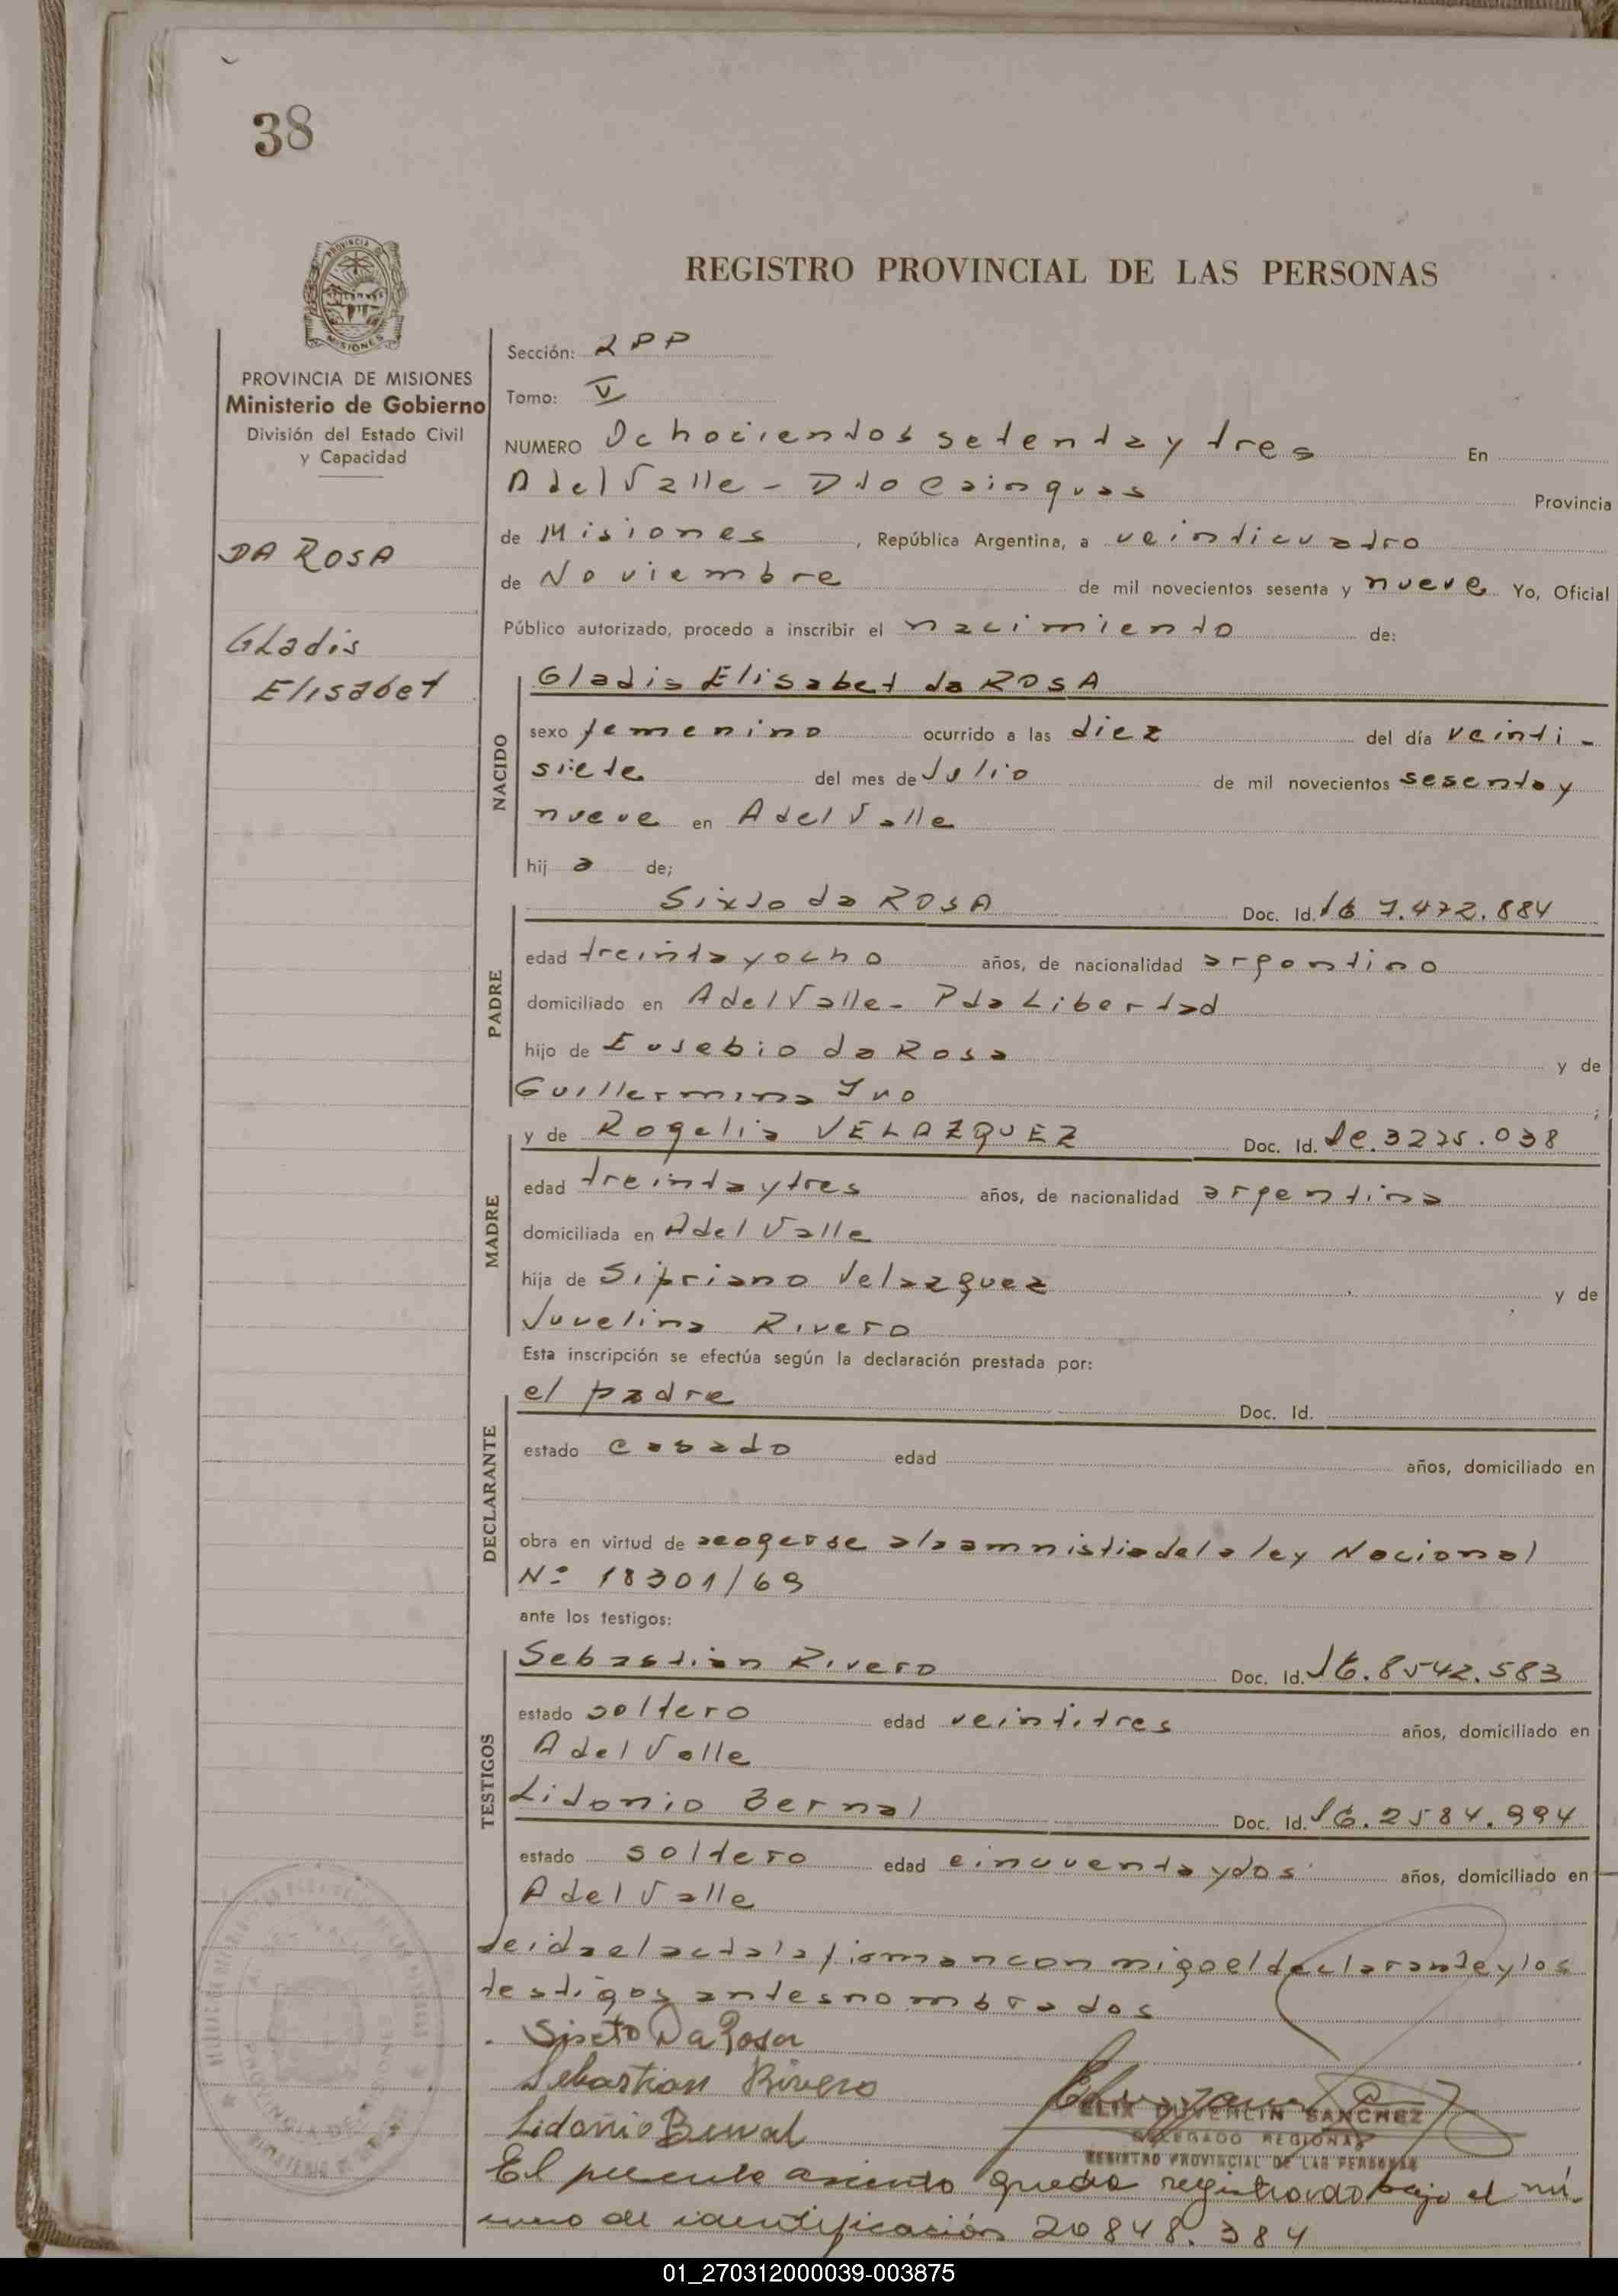 38
REGISTRO PROVINCIAL DE LAS PERSONAS
PROVINCIA DE MISIONES
Ministerio de Gobierno
División del Estado Civil
y Capacidad
DA ROSA
Gladis
Elisabet
Sección: 2 PP
Tomo: V
NUMERO Ochocientos setenta y tres En
A del Valle - Dto Cainguas Provincia
de Misiones, República Argentina, a veinticuatro
de Noviembre de mil novecientos sesenta y nueve Yo, Oficial
Público autorizado, procedo a inscribir el nacimiento de:
NACIDO
Gladis Elisabet da ROSA
sexo femenino ocurrido a las diez del día veinti-
siete del mes de Julio de mil novecientos sesenta y
nueve en A del Valle
hij a de;
PADRE
Sixto da ROSA Doc. Id. 7.472.884
edad treinta y ocho años, de nacionalidad argentino
domiciliado en A del Valle - Pda Libertad
hijo de Eusebio da Rosa y de
Guillermina Ivo
MADRE
y de Rogelia VELAZQUEZ Doc. Id. 3275.038
edad treinta y tres años, de nacionalidad argentina
domiciliada en A del Valle
hija de Sipriano Velazquez y de
Juvelina Rivero
Esta inscripción se efectúa según la declaración prestada por:
DECLARANTE
el padre Doc. Id.
estado casado edad años, domiciliado en
obra en virtud de acogerse a la amnistia de la ley Nacional
Nº 18301/69
ante los testigos:
TESTIGOS
Sebastian Rivero Doc. Id. 8542.583
estado soltero edad veintitres años, domiciliado en
A del Valle
Lidonio Bernal Doc. Id. 2584.994
estado soltero edad cincuenta y dos años, domiciliado en
A del Valle
Leida el acta la firman con migo el declarante y los
testigos antes nombrados
Siscto Da Rosa
Sebastian Rivero
Lidonio Bernal
SANCHEZ
DELEGADO REGIONAL
REGISTRO PROVINCIAL DE LAS PERSONAS
El presente asiento queda registrado bajo el nú-
mero de identificación 20848.384
01_270312000039-003875